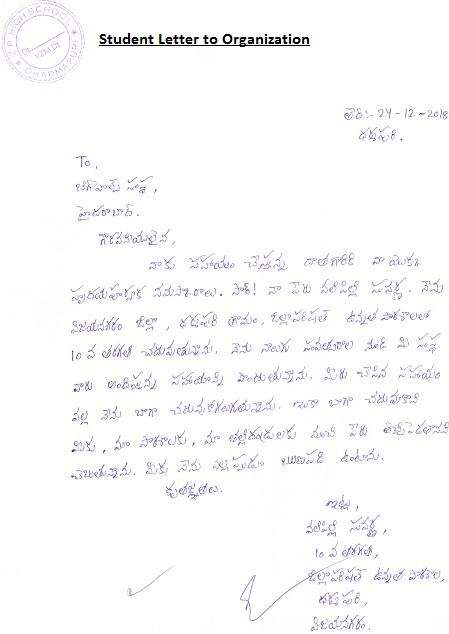 Z.P HIGH SCHOOL
Dt.
VZM Dt.
DHARMAPURI
Student Letter to Organization
తేది:- 24-12-2018
ధర్మపురి.
To,
బిగ్‌హెల్ప్ సంస్థ,
హైదరాబాద్.
గౌరవనీయులైన,
నాకు సహాయం చేస్తున్న దాతగారికి నా యొక్క
హృదయపూర్వక నమస్కారాలు. సార్! నా పేరు వలిపిల్లి సువర్ణ. నేను
విజయనగరం జిల్లా, ధర్మపురి గ్రామం, జిల్లాపరిషత్ ఉన్నత పాఠశాలలో
10 వ తరగతి చదువుతున్నాను. నేను నాలుగు సంవత్సరాల నుండి మీ సంస్థ
వారు అందిస్తున్న సహాయాన్ని పొందుతున్నాను. మీరు చేసిన సహాయం
వల్ల నేను బాగా చదువుకోగలుగుతున్నాను. ఇంకా బాగా చదువుకొని
మీకు, మా పాఠశాలకు, మా తల్లిదండ్రులకు మంచి పేరు తెచ్చిపెడతానని
చెబుతున్నాను. మీకు నేను ఎల్లప్పుడూ ఋణపడి ఉంటాను.
కృతజ్ఞతలు.
ఇట్లు,
వలిపిల్లి సువర్ణ,
10 వ తరగతి,
జిల్లాపరిషత్ ఉన్నత పాఠశాల,
ధర్మపురి,
విజయనగరం.